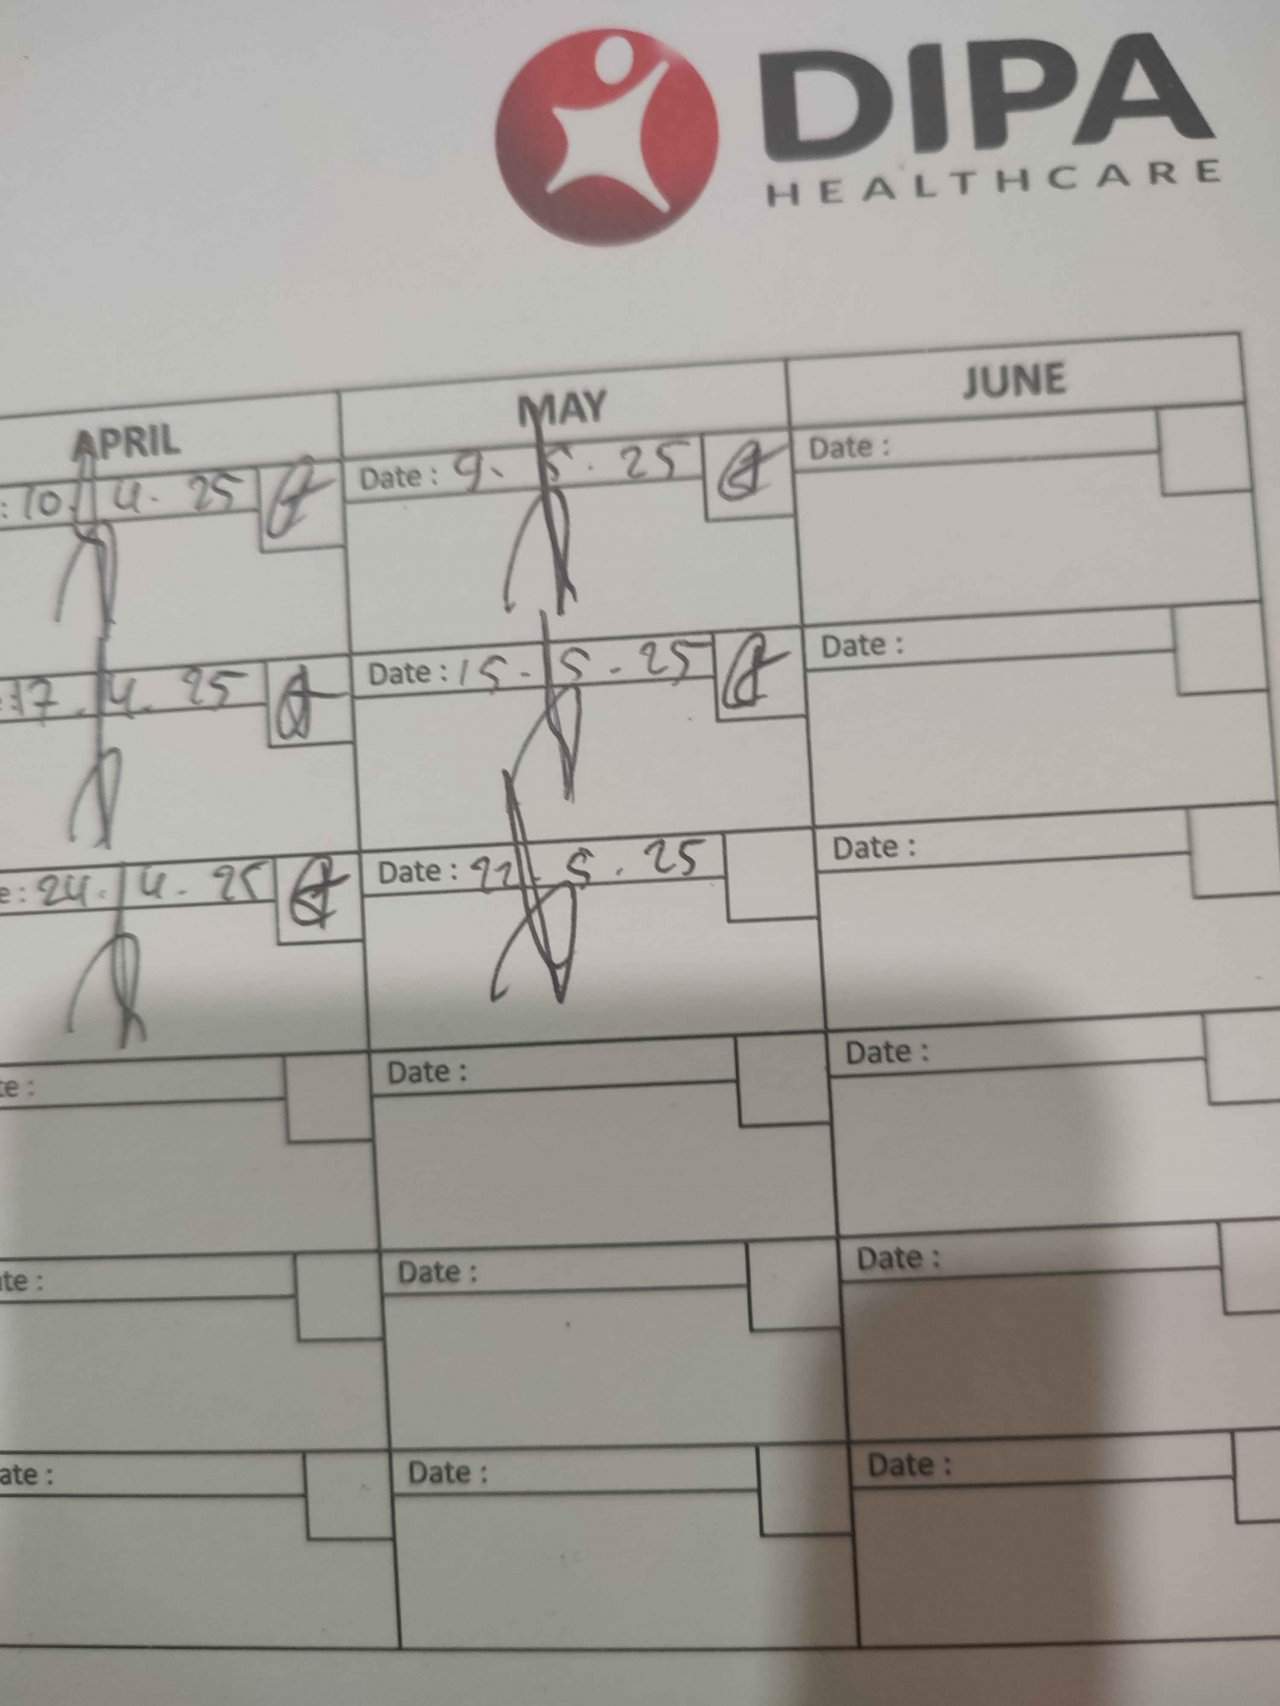 DIPA
HEALTHCARE
APRIL
MAY
JUNE
: 10. 4. 25
Date : 9. 5. 25
Date :
e : 17. 4. 25
Date : 15. 5. 25
Date :
e : 24. 4. 25
Date : 22. 5. 25
Date :
te :
Date :
Date :
ate :
Date :
Date :
ate :
Date :
Date :